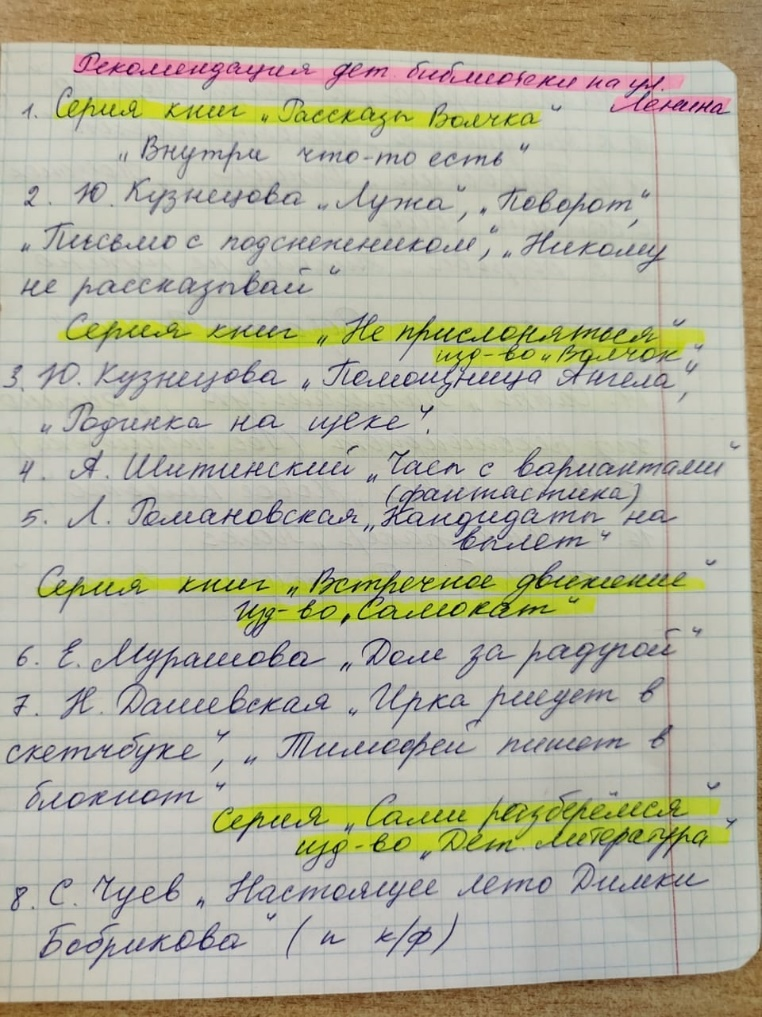 Рекомендация дет. библиотеки на ул.
Ленина
1. Серия книг „Рассказы Волчка"
„Внутри что-то есть"
2. Ю. Кузнецова „Лужа", „Поворот",
„Письмо с подснежником", „Никому
не рассказывай"
Серия книг „Не прислоняться"
изд-во „Волчок"
3. Ю. Кузнецова „Помощница Ангела",
„Родинка на щеке".
4. А. Житинский „Часы с вариантами"
(фантастика)
5. Л. Романовская „Кандидаты на
вылет"
Серия книг „Встречное движение"
изд-во „Самокат"
6. Е. Мурашова „Дом за радугой"
7. Н. Дашевская „Ирка рисует в
скетчбуке", „Тимофей пишет в
блокнот"
Серия „Сами разберёмся"
изд-во „Дет литература"
8. С. Чуев „Настоящее лето Димки
Бобрикова" (и к/ф)